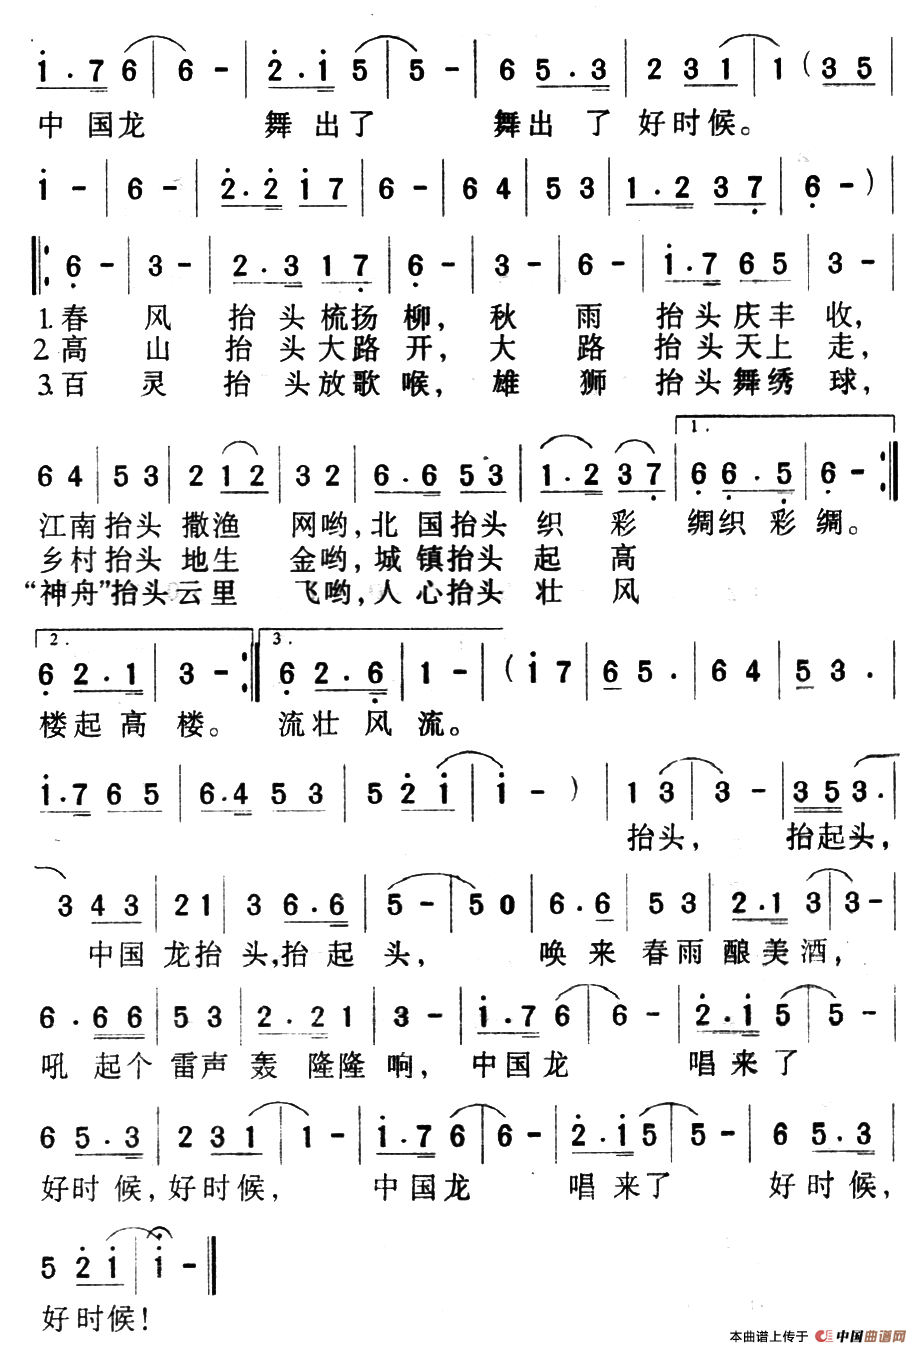 i·7 6 | 6 - | 2·i 5 | 5 - | 6 5·3 | 2 3 1 | 1 (3 5 |
中国龙 舞出了 舞出了好时候。
i - | 6 - | 2·2 i 7 | 6 - | 6 4 | 5 3 | 1·2 3 7 | 6 - ) |
6 - | 3 - | 2·3 1 7 | 6 - | 3 - | 6 - | i·7 6 5 | 3 - |
1.春风抬头梳扬柳，秋雨抬头庆丰收，
2.高山抬头大路开，大路抬头天上走，
3.百灵抬头放歌喉，雄狮抬头舞绣球，
1.
6 4 | 5 3 | 2 1 2 | 3 2 | 6·6 5 3 | 1·2 3 7 | 6 6·5 | 6 - :|
江南抬头撒渔网哟，北国抬头织彩绸织彩绸。
乡村抬头地生金哟，城镇抬头起高
“神舟”抬头云里飞哟，人心抬头壮风
2. 3.
6 2·1 | 3 - :| 6 2·6 | 1 - | (i 7 | 6 5· | 6 4 | 5 3· |
楼起高楼。 流壮风流。
i·7 6 5 | 6·4 5 3 | 5 2 i | i - ) | 1 3 | 3 - | 3 5 3· |
抬头， 抬起头，
3 4 3 | 2 1 | 3 6·6 | 5 - | 5 0 | 6·6 | 5 3 | 2·1 3 | 3 - |
中国龙抬头，抬起头， 唤来春雨酿美酒，
6·6 6 | 5 3 | 2·2 1 | 3 - | i·7 6 | 6 - | 2·i 5 | 5 - |
吼起个雷声轰隆隆响，中国龙 唱来了
6 5·3 | 2 3 1 | 1 - | i·7 6 | 6 - | 2·i 5 | 5 - | 6 5·3 |
好时候，好时候， 中国龙 唱来了 好时候，
5 2 i | i - ‖
好时候！
本曲谱上传于 中国曲谱网